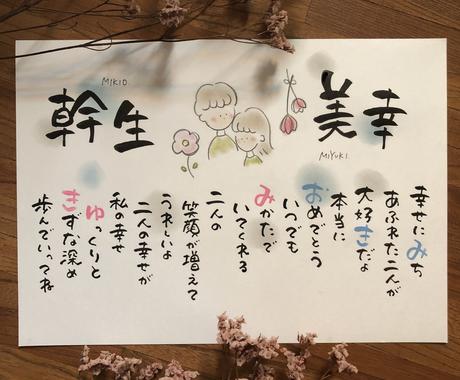 幹生
MIKIO
美幸
MIYUKI
幸せにみち
あふれた二人が
大好きだよ
本当に
おめでとう
いつでも
みかたで
いてくれる
二人の
笑顔が増えて
うれしいよ
二人の幸せが
私の幸せ
ゆっくりと
きずな深め
歩んでいってね